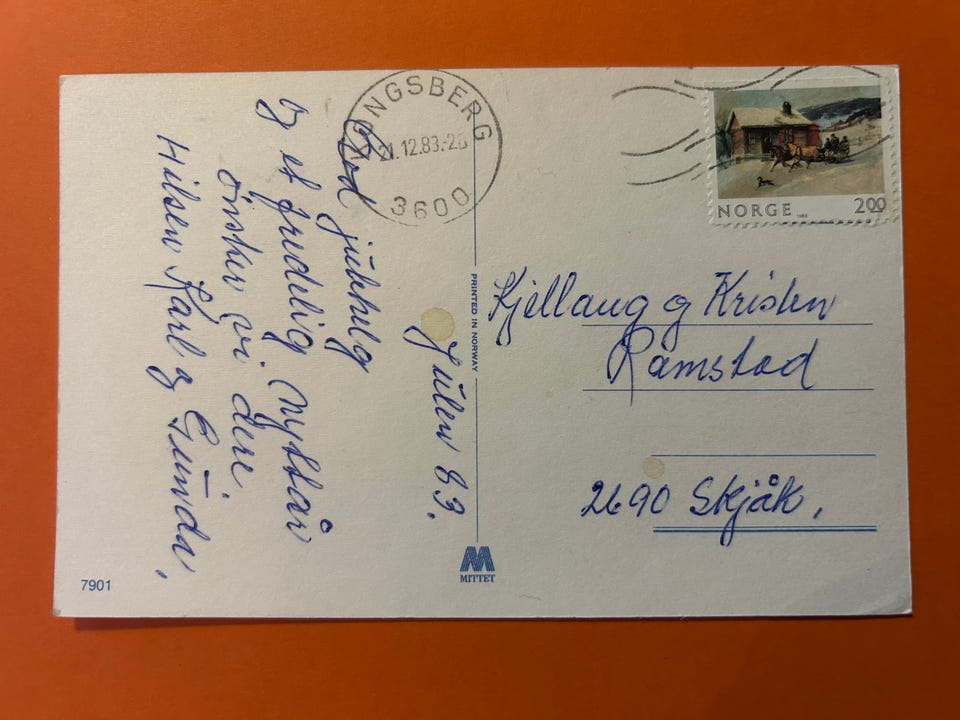 KONGSBERG
21.12.83.-20
3600
NORGE 200
Julen 83.
God julehelg
og et fredelig nyttår
ønsker vi dere.
Hilsen Karl og Gunda.
Kjellaug og Kristen
Ramstad
2690 Skjåk.
PRINTED IN NORWAY
MITTET
7901